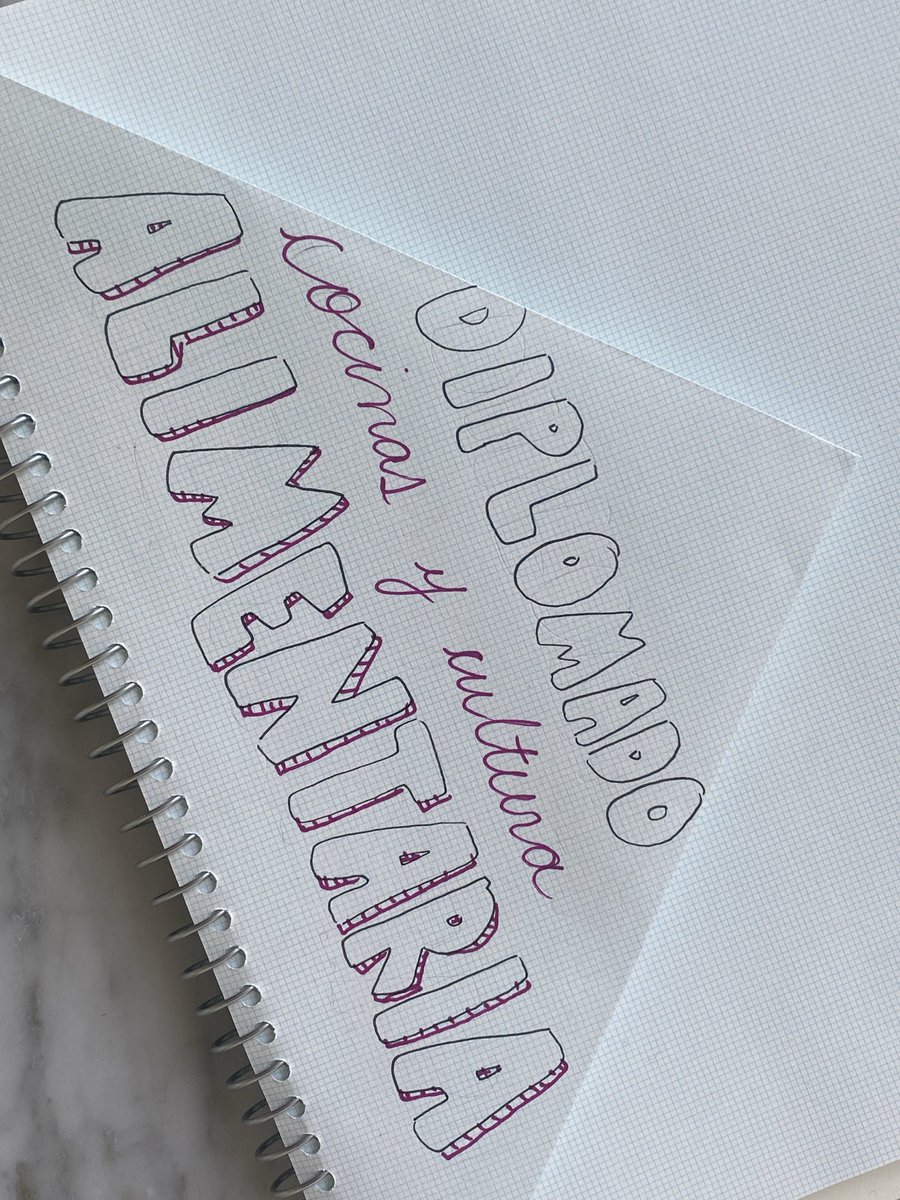 DIPLOMADO
cocinas y cultura
ALIMENTARIA